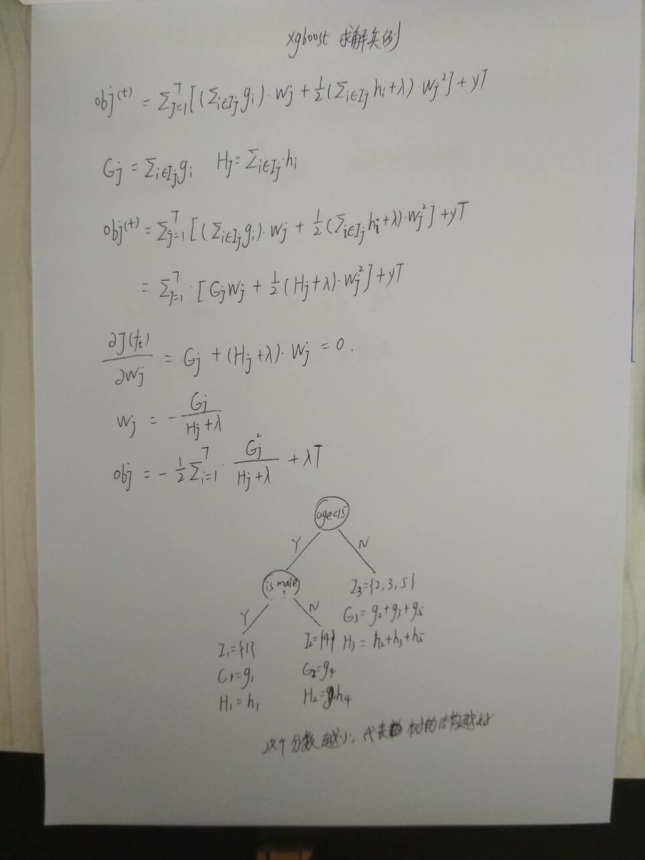 xgboost 求解实例
obj^(t) = Σ_{j=1}^T [(Σ_{i∈I_j} g_i)·w_j + 1/2 (Σ_{i∈I_j} h_i+λ)·w_j²] + γT
G_j = Σ_{i∈I_j} g_i H_j = Σ_{i∈I_j} h_i
obj^(t) = Σ_{j=1}^T [(Σ_{i∈I_j} g_i)·w_j + 1/2 (Σ_{i∈I_j} h_i+λ)·w_j²] + γT
= Σ_{j=1}^T · [G_j w_j + 1/2 (H_j+λ)·w_j²] + γT
∂J(f_t)/∂w_j = G_j + (H_j+λ)·w_j = 0.
w_j = - G_j/(H_j+λ)
obj = - 1/2 Σ_{i=1}^T · G_j²/(H_j+λ) + λT
age<15
Y N
is male?
Y N
I₃={2,3,5}
G₃= g₂+g₃+g₅
H₃= h₂+h₃+h₅
I₁={1}
G₁=g₁
H₁=h₁
I₂={4}
G₂=g₄
H₂=h₄
这个分数越小,代表树的结构越好